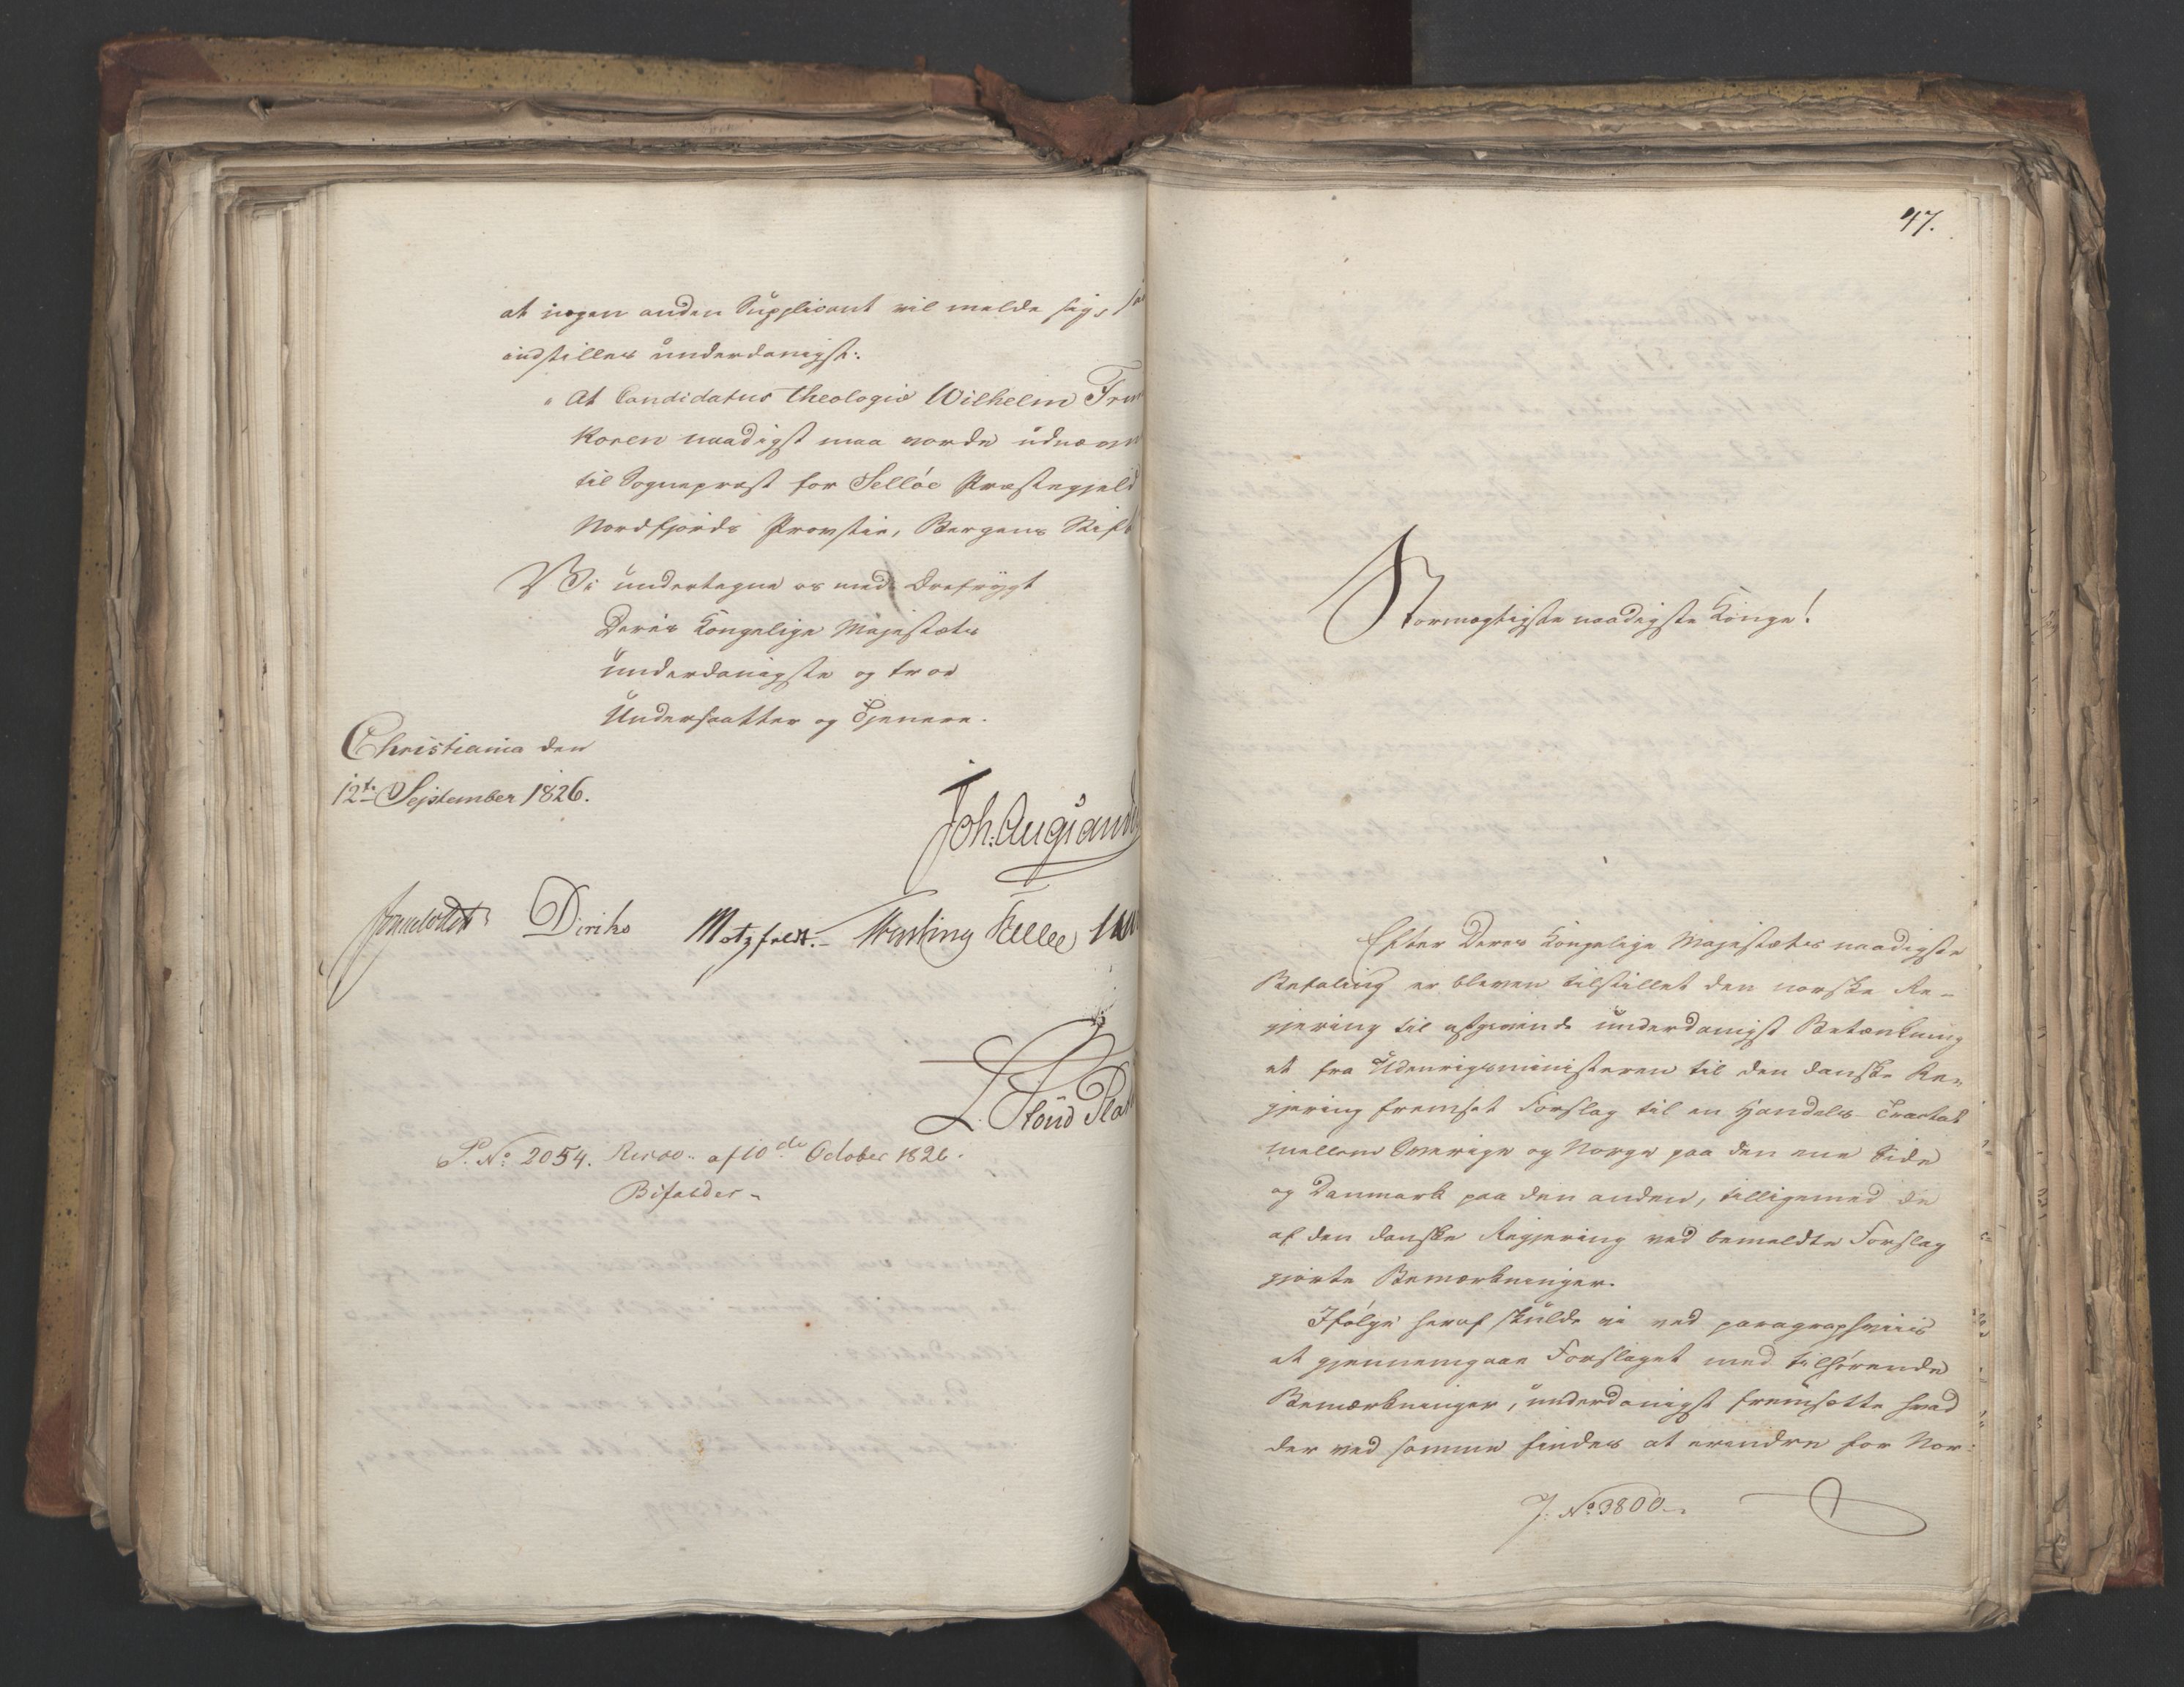 at nogen anden Supplicant vil melde sig,
indstilles underdanigst:
"At Candidatus theologiæ Wilhelm
Koren naadigst maa vorde
til Sognepræst for Selløe Præstegjeld
Nordfjords Provstie, Bergens Stift
Vi undertegne os med Ærefrygt
Deres Kongelige Majestæts
underdanigste og troe
Undersaatter og Tjenere.
Christiania den
12te September 1826.
Diriks Motzfeldt.
P. No 2054. Resol. af 10de October 1826.
Bifaldes
47.
Stormægtigste naadigste Konge!
Efter Deres Kongelige Majestæts naadigste
Befaling er bleven tilstillet den norske Re-
gjering til afgivende underdanigst Betænkning
et fra Udenrigsministeren til den danske Re-
gjering fremsat Forslag til en Handels Tractat
mellem Sverige og Norge paa den ene Side
og Danmark paa den anden, tilligemed de
af den danske Regjering ved bemeldte Forslag
gjorte Bemærkninger.
Ifølge heraf skulde vi ved paragraphviis
at gjennemgaae Forslaget med tilhørende
Bemærkninger, underdanigst fremsætte hvad
der ved samme findes at erindre for Nor-
J. No 3800